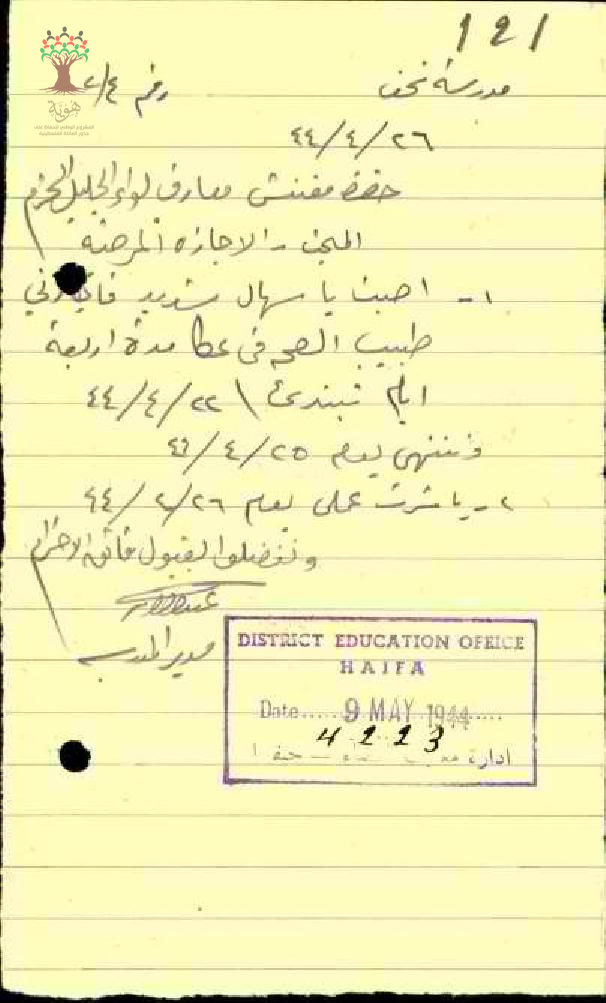 121
هوية
مدرسة نحف
رقم ٢/٤
٤٤/٤/٢٦
حضرة مفتش معارف لواء الجليل المحترم
المبحث - الاجازه المرضية
١- اصبت باسهال شديد
طبيب الصحه في عكا مدة اربعة
ايام تبتدئ ٤٤/٤/٢٢
وتنتهي يوم ٤٤/٤/٢٥
٢- باشرت عملي يوم ٤٤/٤/٢٦
وتفضلوا بقبول فائق الاحترام
مدير المدرسه
DISTRICT EDUCATION OFFICE
HAIFA
Date..... 9 MAY 1944.....
4223
ادارة